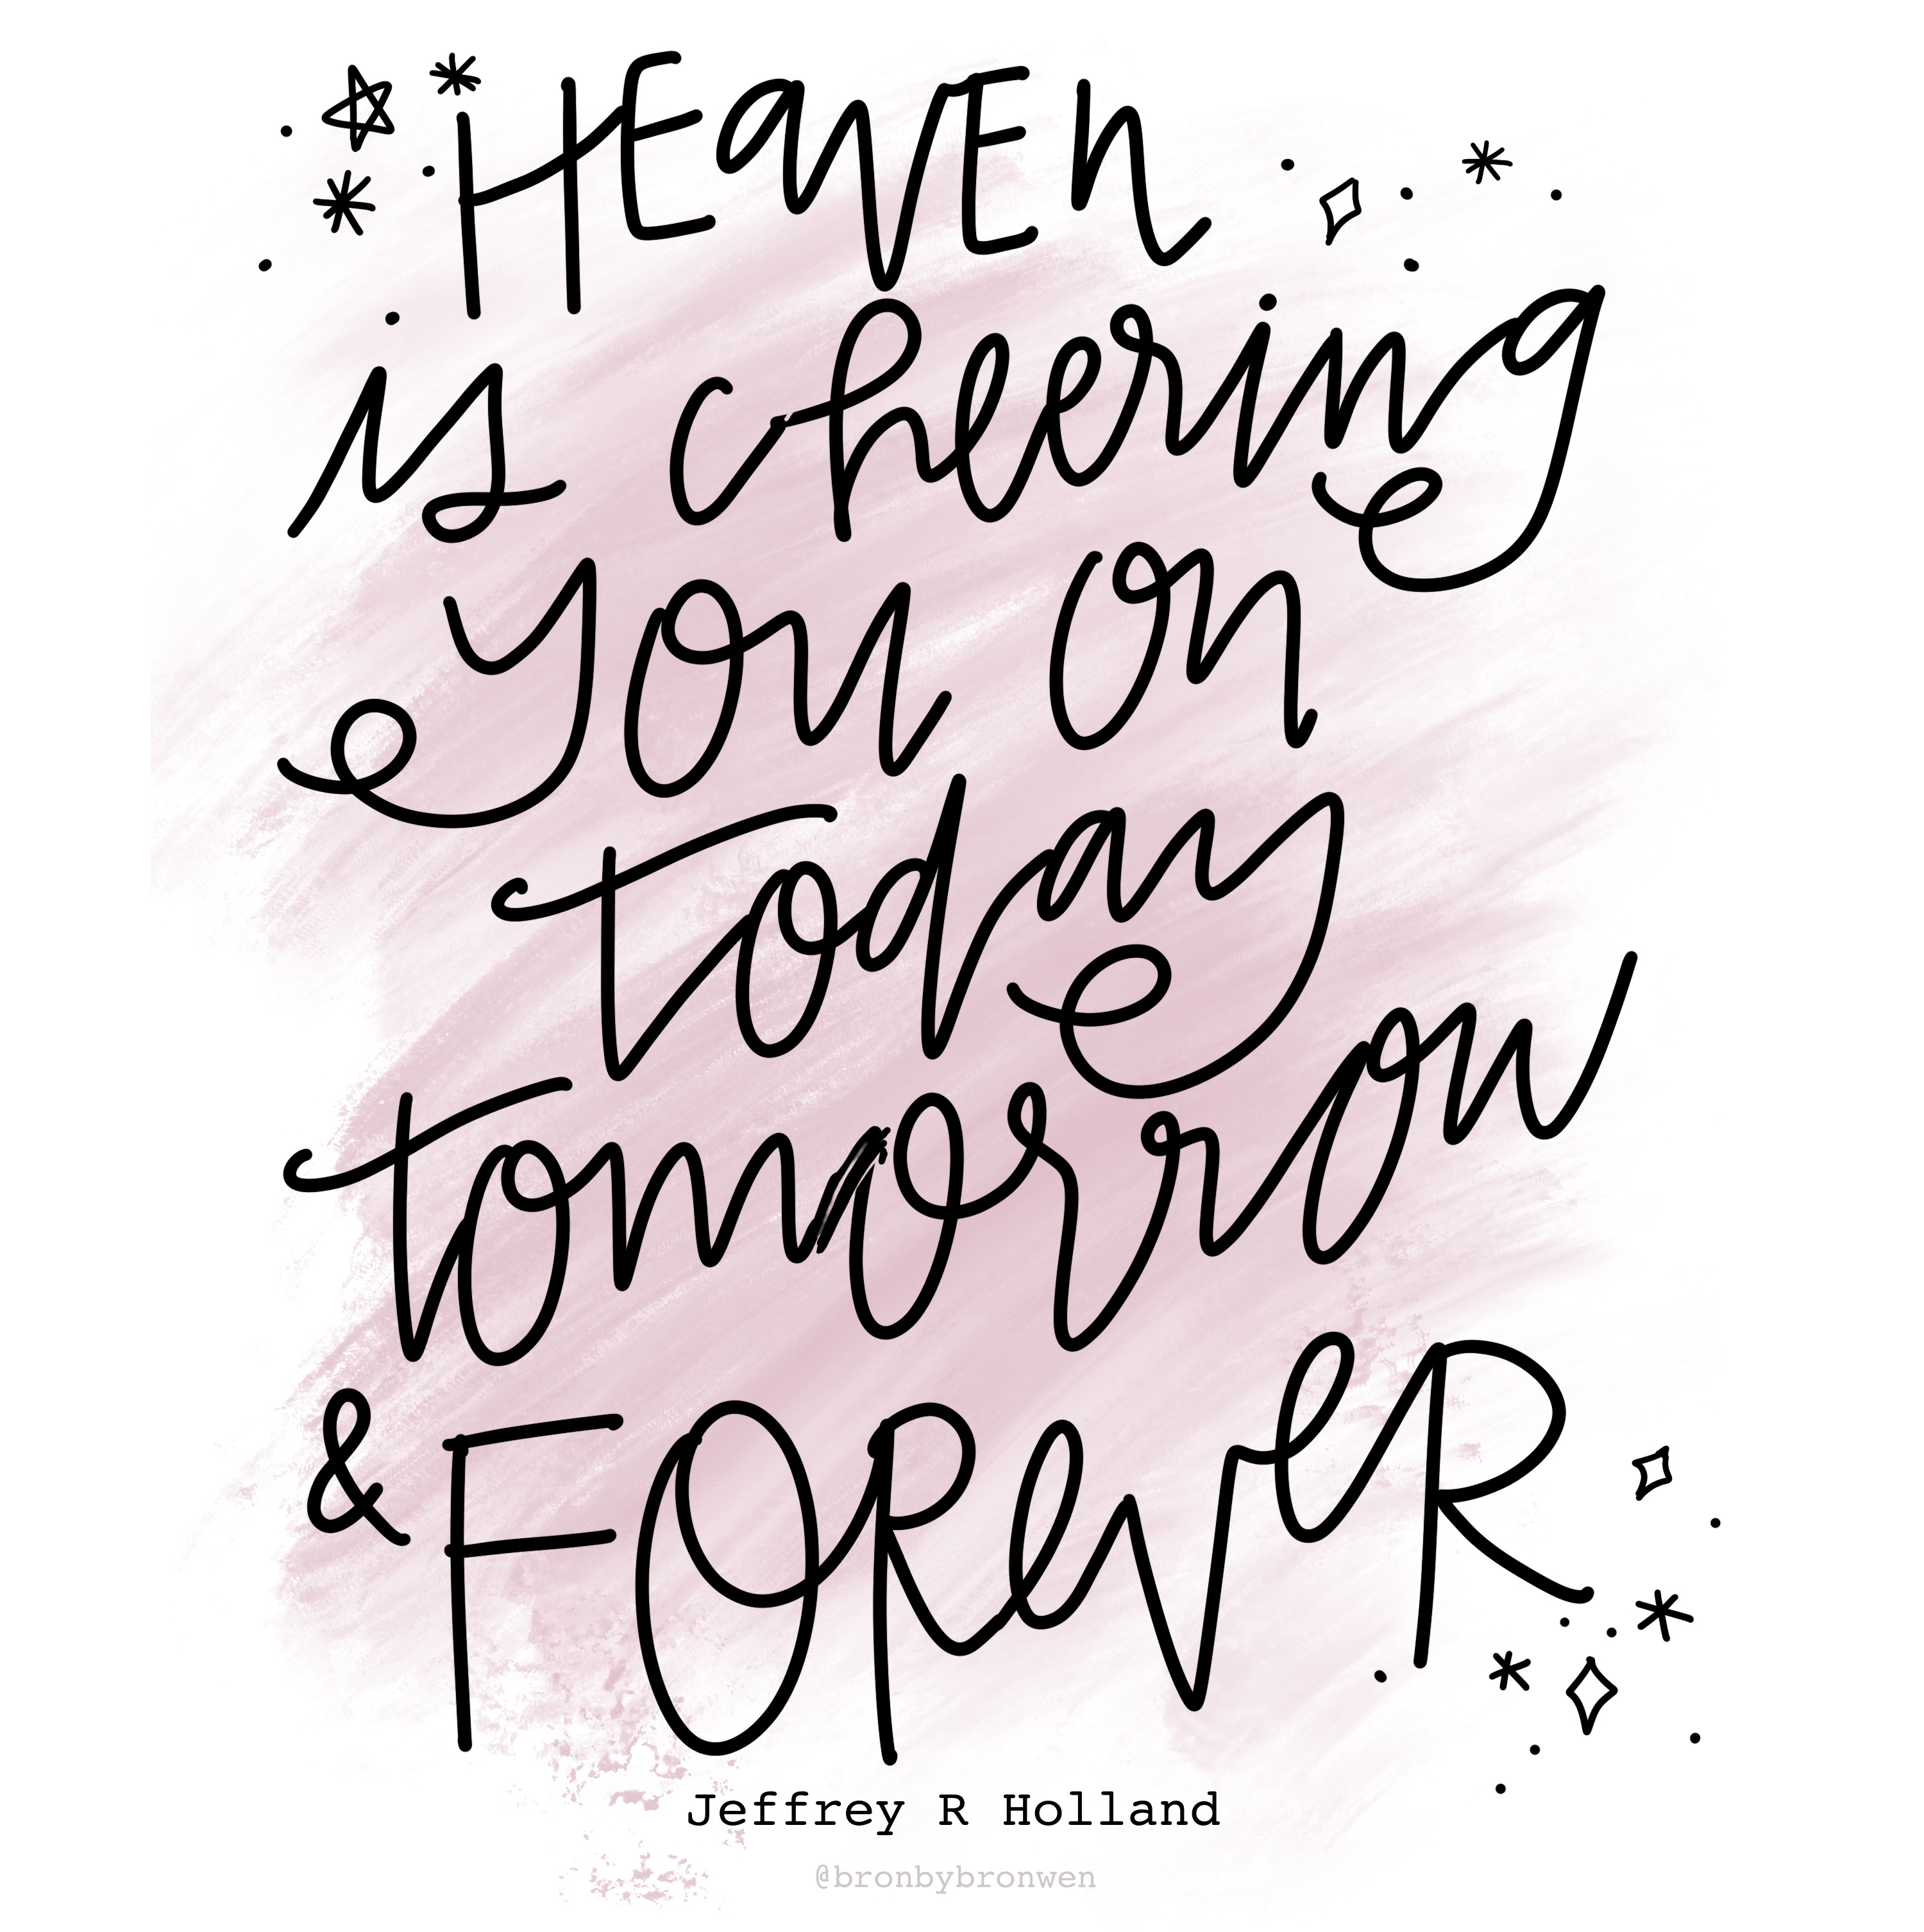 HEaVEn
is cheering
you on
today
tomorrow
& FOReVeR
Jeffrey R Holland
@bronbybronwen